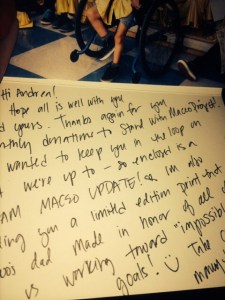 Hi Andrea!
Hope all is well with you
yours. Thanks again for you
donations to Stand with
wanted to keep you in the loop on
we're up to - so enclosed is a
MACSO UPDATE! I'm also
you a limited edition print that
dad made in honor of all
us working toward "impossible
goals! Take